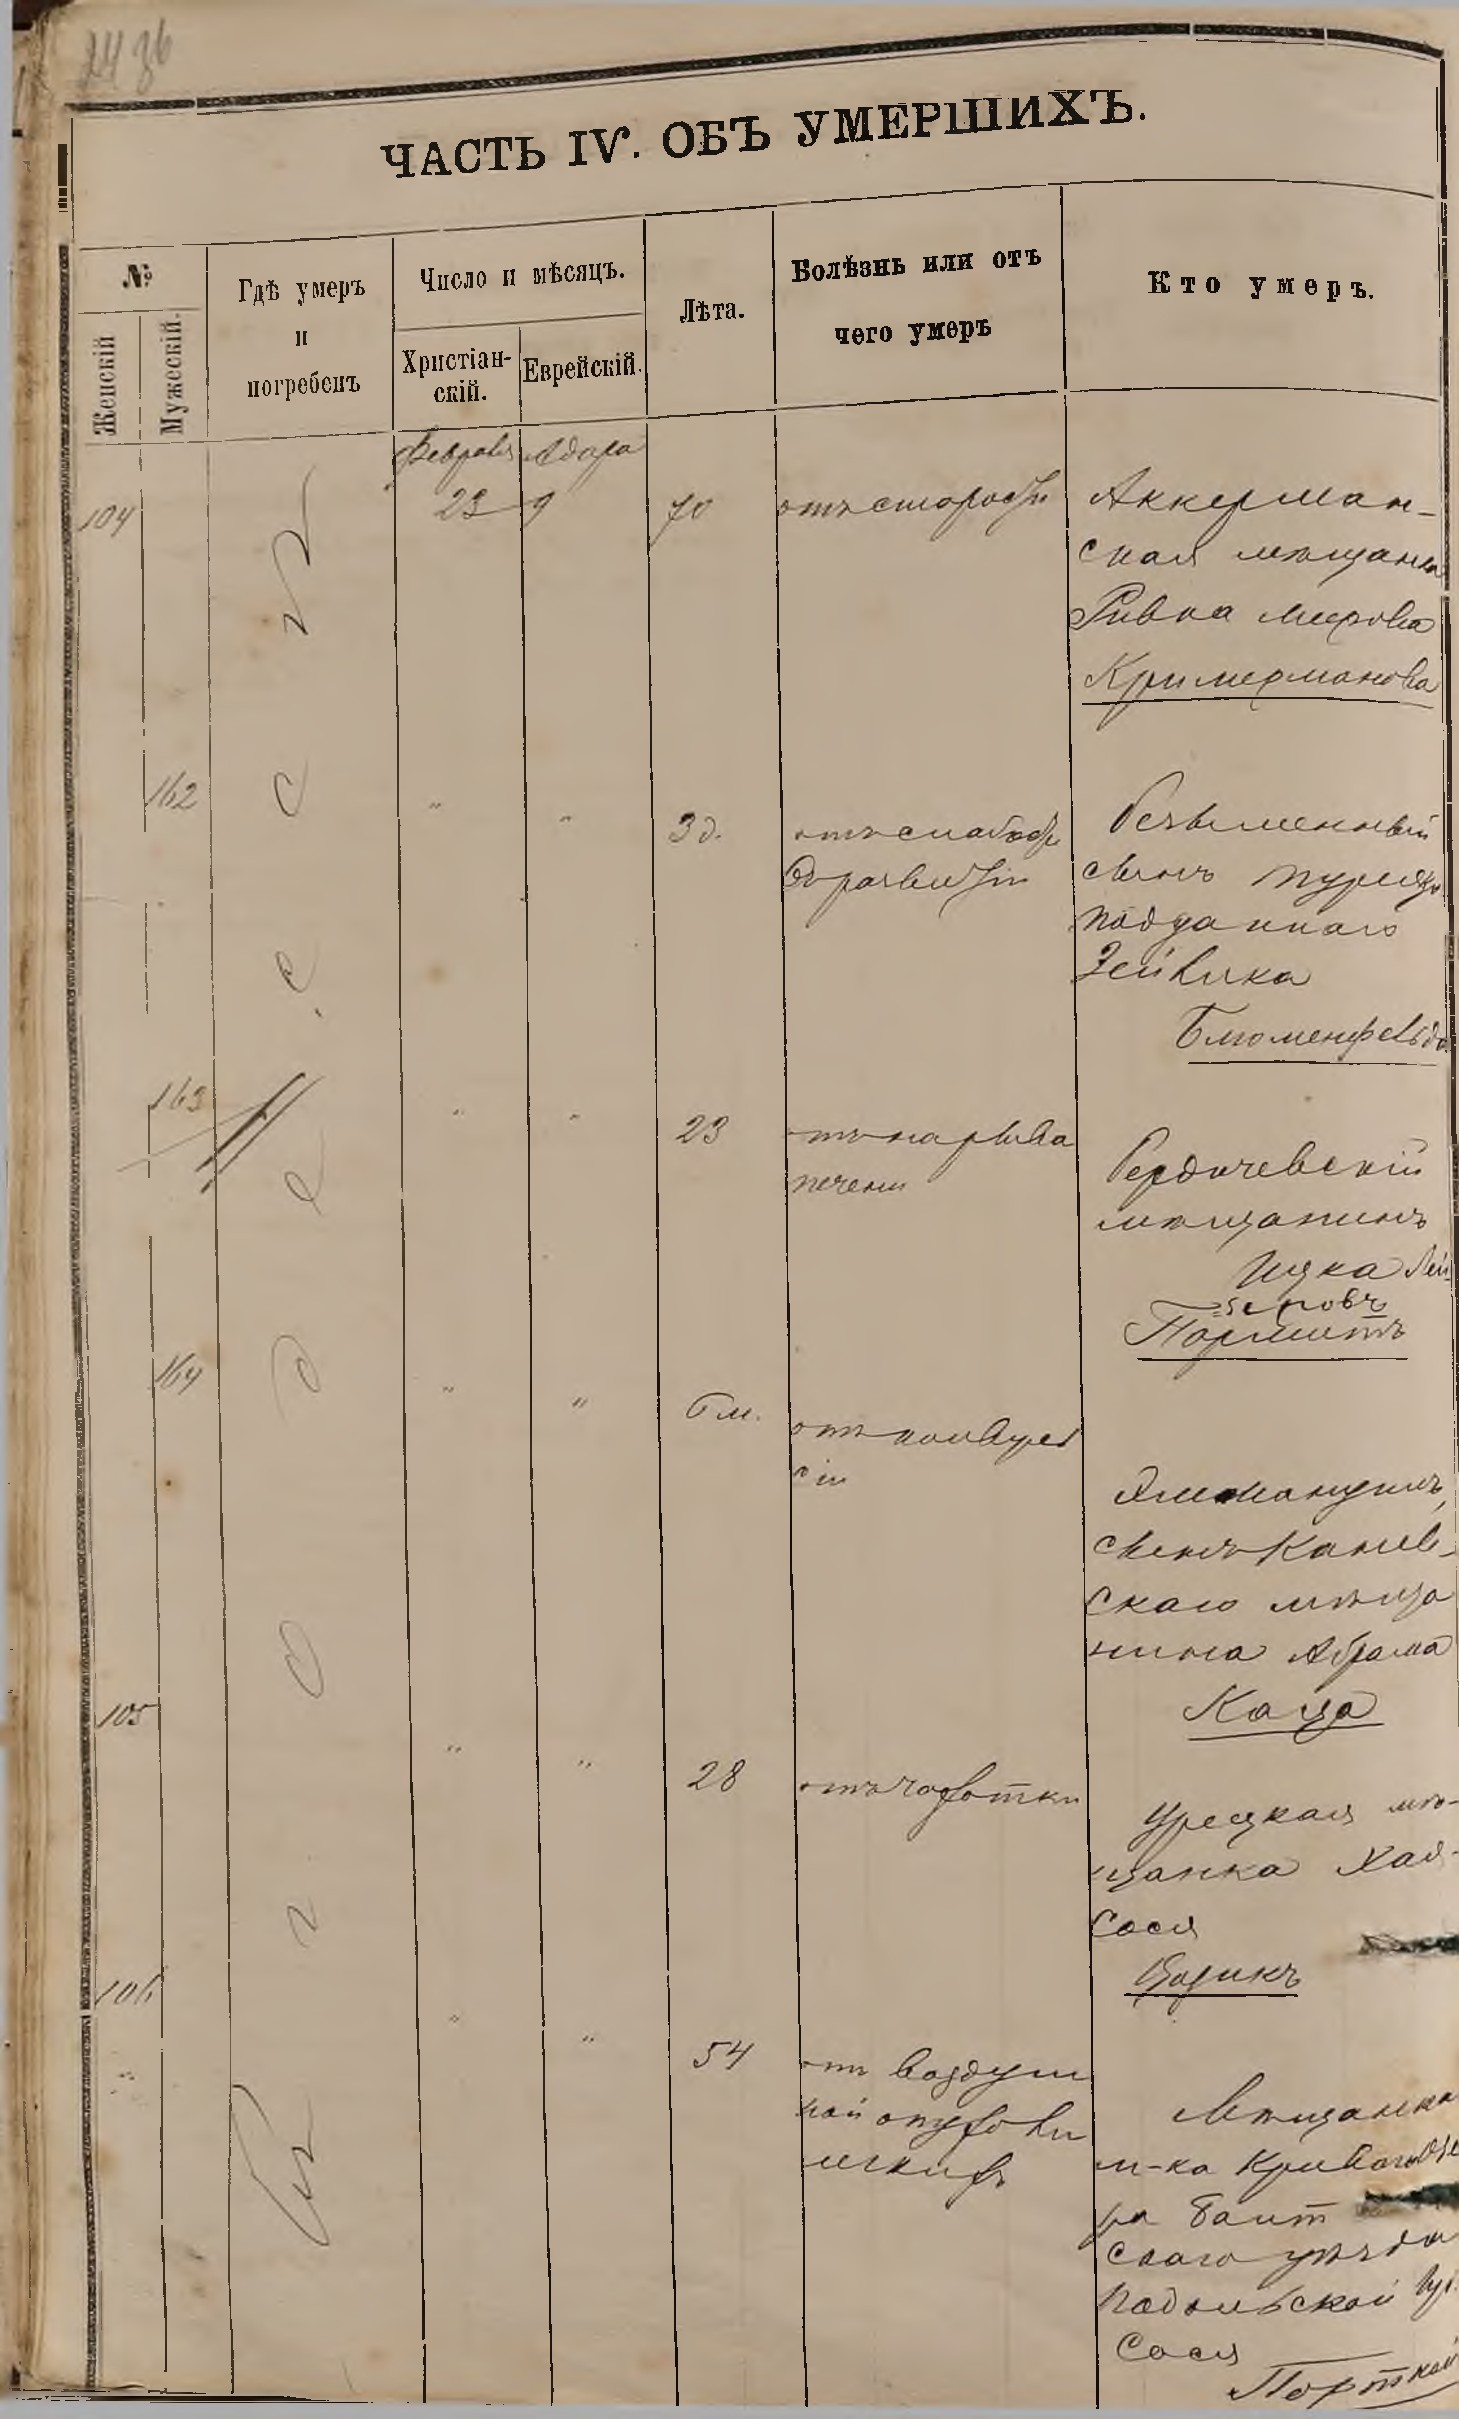 ЧАСТЬ IV. ОБЪ УМЕРШИХЪ.
№
Женскій
Мужескій.
Гдѣ умеръ
и
погребенъ
Число и мѣсяцъ.
Христіан-
скій.
Еврейскій.
Лѣта.
Болѣзнь или отъ
чего умеръ
Кто умеръ.
Февраля Адара
104 23 9 70 отъ старости
Аккерман-
ская мѣщанка
Ривка Меерова
Кримерманова
162 " " 3 д. отъ слабости
развитія
безъименный
сынъ турецко
подданнаго
Зейвика
Блюменфельда
163 " " 23 отъ нарыва
печени
Бердичевскій
мѣщанинъ
Ицка Лей-
зеровъ
164 " " 6 м. отъ конвуль
сіи
сынъ Канев-
скаго мѣща
нина Абрама
Каца
105 " " 28 отъ чахотки
мѣ-
щанка Хая-
Сося
106 " " 54 отъ воздуш
ной опухоли
легкихъ
Мѣщанка
м-ка Кривого Озе
ра Балт
скаго уѣзда
Подольской губ.
Сося